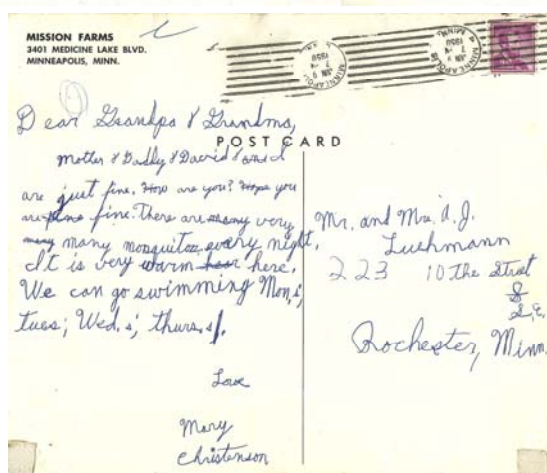 MISSION FARMS
3401 MEDICINE LAKE BLVD.
MINNEAPOLIS, MINN.
MINNEAPOLIS
MINN.
1958
Dear Grandpa & Grandma,
POST CARD
Mother & Daddy & David & and I
are just fine. How are you? Hope you
are fine. There are many very
many many mosquitoe, every night.
It is very warm hear here.
We can go swimming Mon,s;
tues; Wed,s; thurs,s.
Love
Mary
Christenson
Mr. and Mrs. A.J.
Luehmann
223 10 the Street
S
S.E.
Rochester, Minn.